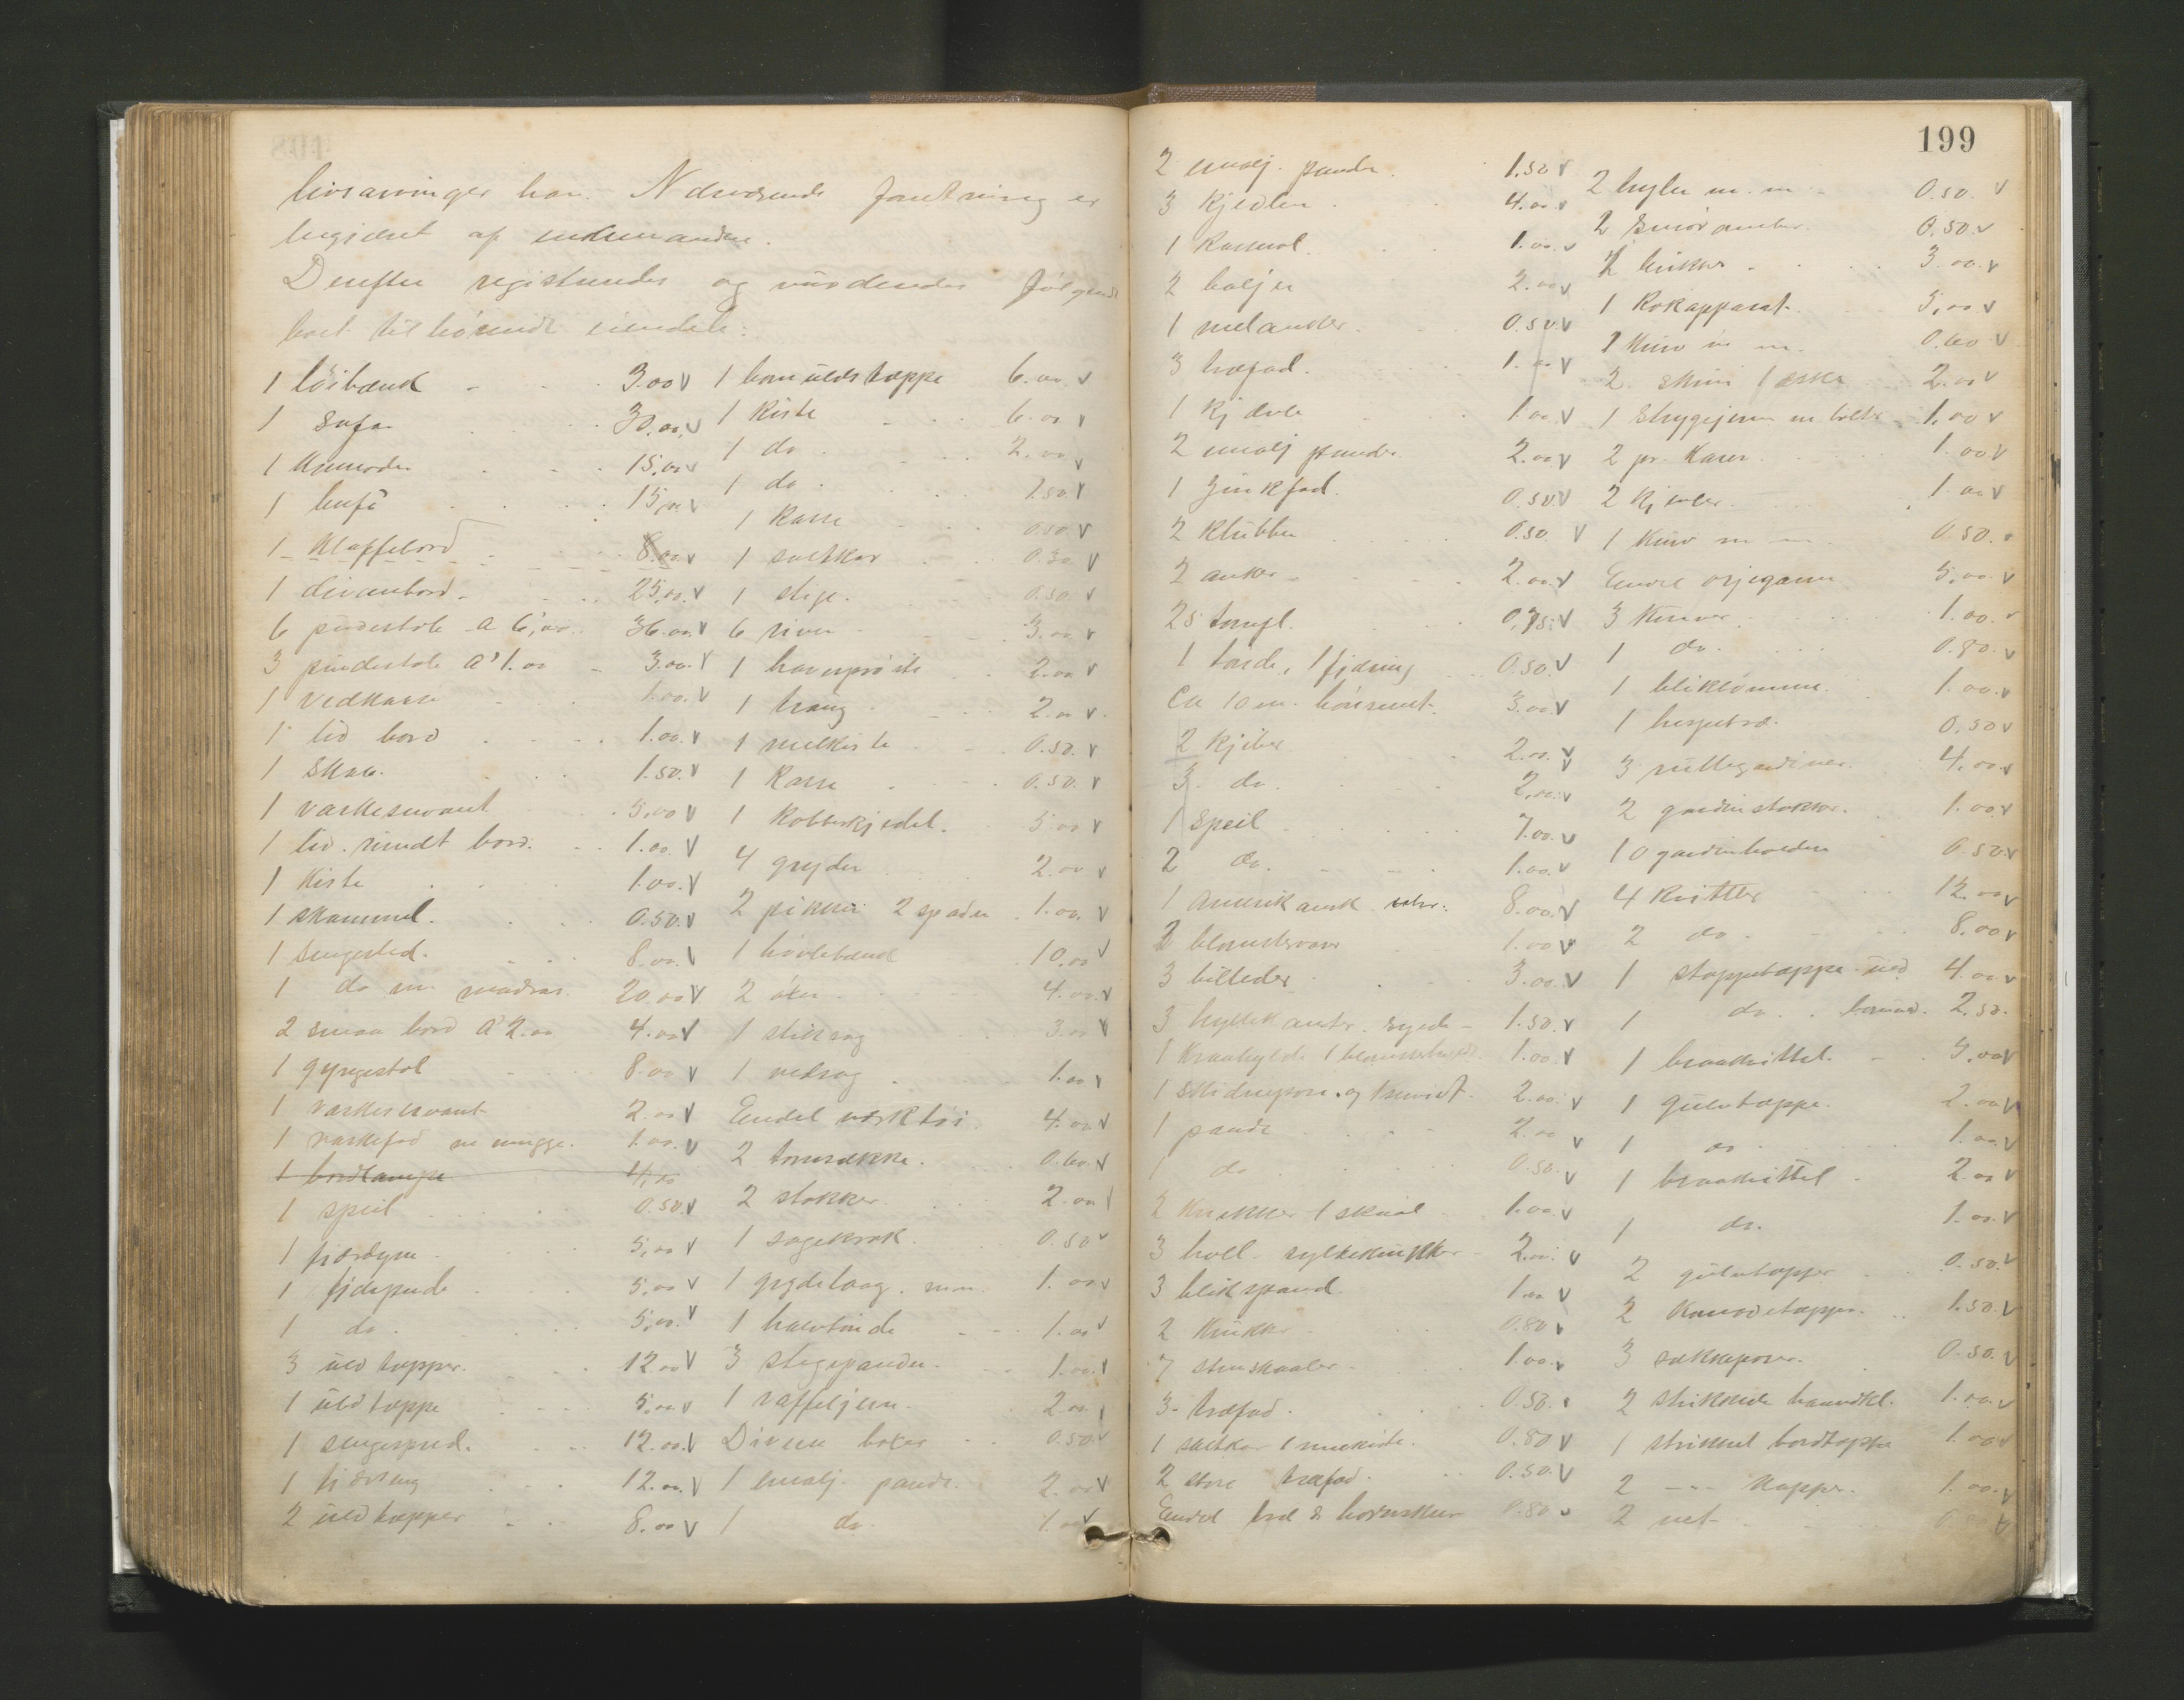 livsarvinger har. Nærværende forretning er
begjæret af enkemanden.
Derefter registreredes og vurderedes følgende
boet tilhørende eiendele:
1 löibænk 3.00 V
1 sofa 30.00 V
1 Komode 15.00 V
1 bufé 15.00 V
1 Klaffebord 8.00 V
1 divanbord 25.00 V
6 pindestole a 6,00 36.00 V
3 pindestole a' 1.00 3.00 V
1 vedkasse 1.00 V
1 lid bord 1.00 V
1 Skab. 1.50 V
1 vaskeservant 5.00 V
1 lid. rundt bord. 1.00 V
1 Kiste 1.00 V
1 skammel. 0.50 V
1 sengested. 8.00 V
1 do m madras. 20.00 V
2 smaa bord a' 2.00 4.00 V
1 gyngestol 8.00 V
1 vaskeservant 2.00 V
1 vaskefad m mugge. 1.00 V
1 bordlampe 4,00
1 speil 0.50 V
1 fjærdyne 5,00 V
1 fjdrpude 5,00 V
1 do. 5,00 V
3 uld tæpper. 12.00 V
1 uld tæppe 5,00 V
1 sengespred. 12.00 V
1 12.00 V
2 uld tæpper 8.00 V
1 bomulds tæppe 6.00 V
1 Kiste 6.00 V
1 do 2.00 V
1 do. 1.50 V
1 Kasse 0.50 V
1 saltkar 0.30 V
1 stige. 0.50 V
6 river 3.00 V
1 2.00 V
1 2.00 V
1 melkiste 0.50 V
1 Kasse 0.50 V
1 Kobberkjedel. 5.00 V
4 gryder 2.00 V
2 pikker 2 spader 1.00 V
1 hövlebænk 10,00 V
2 öxer 4.00 V
1 stiksag 3.00 V
1 vedsag 1.00 V
Endel værktöi 4.00 V
2 tomsække. 0.60 V
2 stokker 2.00
1 sagekrak. 0.50 V
1 grydelaag. m.m. 1.00 V
1 halvtönde 1.00 V
3 stegepander. 1.00 V
1 vaffeljern. 2.00
Diverse bøker 0.50 V
1 emalj. pande. 2.00 V
1 do 1.00 V
199
2 emalj. pander. 1.50 V
3 Kjedler 4.00 V
1 Kasserol. 1.00 V
2 baljer 2.00 V
1 melanker. 0.50 V
3 træfad. 1.00 V
1 1.00 V
2 emalj pander. 2.00 V
1 Zinkfad. 0.50 V
2 Klubber 0.50 V
2 anker 2.00 V
25 tomfl. 0.75 V
1 tönde, 1 fjæring 0.50 V
Ca 10 m. hönsenet. 3.00 V
2 kjiber 2.00 V
3 do. 2.00 V
1 Speil 7.00 V
2 do. 1.00 V
1 Amerikansk 8.00 V
2 blomstervaser 1.00 V
3 billeder 3.00 V
3 hyllekanter. syede 1.50 V
1 Kraahylde 1 1.00 V
1 2.00 V
1 pande 2.00 V
1 do 0.50 V
2 Krukker 1 skaal 1.00 V
3 holl. syltekrukker 2.00 V
3 blikspand 1.00 V
2 Krukker 0.80 V
7 stenskaaler 1.00 V
3 træfad. 0.50
1 saltkar 1 melkiste. 0.80 V
2 store træfad. 0.50 V
Endel træ & hornskeer 0.80 V
2 hyler m. m. 0.50 V
2 Smörambar. 0.50 V
2 brikker 3.00 V
1 Kokapparat. 5,00 V
1 Kurv m m. 0.60 V
2 skrin 1 æske 2.00 V
1 Strygejern m bolte 1.00 V
2 pr. Karer 1.00 V
2 1.00 V
1 Kurv m m 0.50
Endel garn 5,00 V
3 Kurver 1.00
1 do. 0.80 V
1 1.00 V
1 hespetræ. 0.50 V
3 rullegardiner. 4.00 V
2 gardinstokker. 1.00 V
10 gardinholdere 0.50 V
4 Kvitler 12.00 V
2 do 8.00 V
1 stoppetæppe uld 4.00 V
1 do. bomuld. 2.50
1 braakvittel. 5,00 V
1 gulvtæppe. 2.00 V
1 do 1.00 V
1 braakvittel 2.00 V
1 do. 1.00 V
2 gulvtæpper 0.50 V
2 Komodetæpper. 1.50 V
3 sækkeposer. 0.50 V
2 strikkede haandkl. 1.00 V
1 strikket bordtæppe 1.00 V
2 Kapper. 1.00 V
2 net